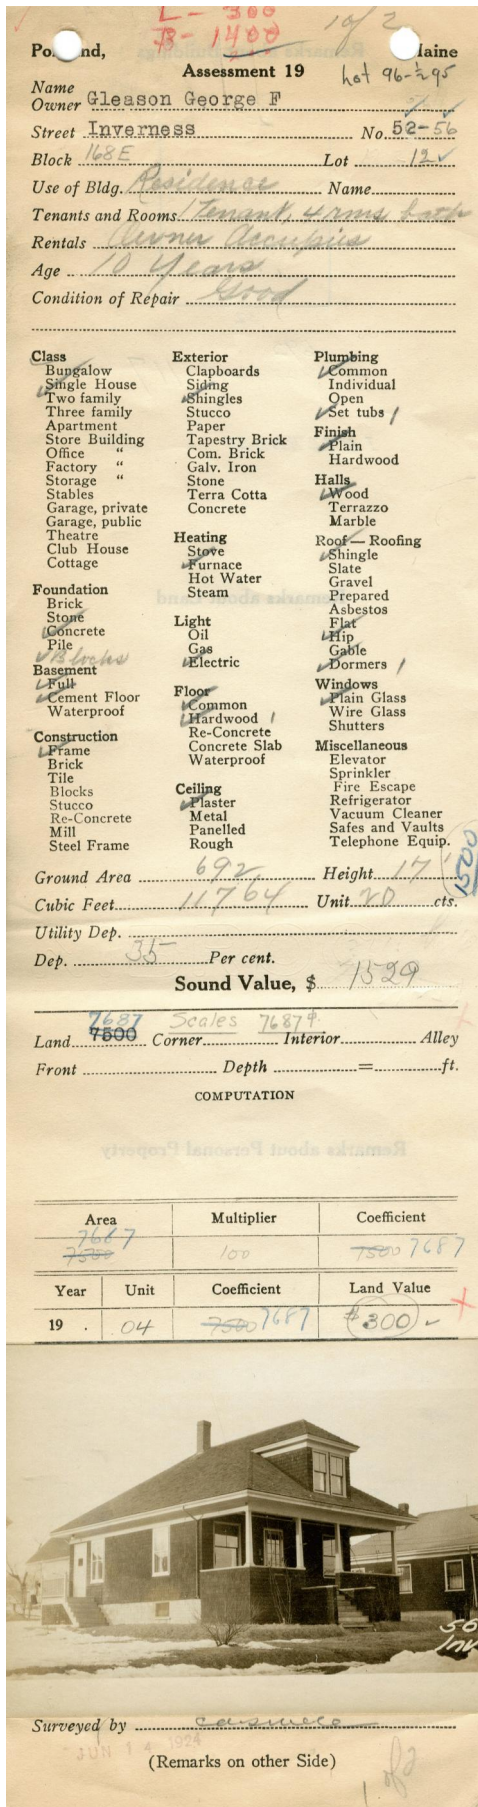 L - 300
B - 1400
1 of 2
Portland, Maine
Assessment 19
Lot 96-½95
Name
Owner Gleason George F
Street Inverness No. 52-56
Block 168E Lot 12
Use of Bldg. Residence Name
Tenants and Rooms 1 Tenant, 4 rms bath
Rentals Owner Occupies
Age 10 Years
Condition of Repair Good
Class
Bungalow
Single House
Two family
Three family
Apartment
Store Building
Office "
Factory "
Storage "
Stables
Garage, private
Garage, public
Theatre
Club House
Cottage
Foundation
Brick
Stone
Concrete
Pile
Blocks
Basement
Full
Cement Floor
Waterproof
Construction
Frame
Brick
Tile
Blocks
Stucco
Re-Concrete
Mill
Steel Frame
Exterior
Clapboards
Siding
Shingles
Stucco
Paper
Tapestry Brick
Com. Brick
Galv. Iron
Stone
Terra Cotta
Concrete
Heating
Stove
Furnace
Hot Water
Steam
Light
Oil
Gas
Electric
Floor
Common
Hardwood 1
Re-Concrete
Concrete Slab
Waterproof
Ceiling
Plaster
Metal
Panelled
Rough
Plumbing
Common
Individual
Open
Set tubs 1
Finish
Plain
Hardwood
Halls
Wood
Terrazzo
Marble
Roof—Roofing
Shingle
Slate
Gravel
Prepared
Asbestos
Flat
Hip
Gable
Dormers 1
Windows
Plain Glass
Wire Glass
Shutters
Miscellaneous
Elevator
Sprinkler
Fire Escape
Refrigerator
Vacuum Cleaner
Safes and Vaults
Telephone Equip.
1520
Ground Area 692 Height 17
Cubic Feet 11764 Unit 20 cts.
Utility Dep.
Dep. 35 Per cent.
Sound Value, $ 1529
7687 Scales 7687
Land 7500 Corner Interior Alley
Front Depth = ft.
COMPUTATION
Area Multiplier Coefficient
7687
7500 100 7500 7687
Year Unit Coefficient Land Value
19 . .04 7500 7687 $300
Surveyed by
JUN 14 1924
(Remarks on other Side)
1 of 2